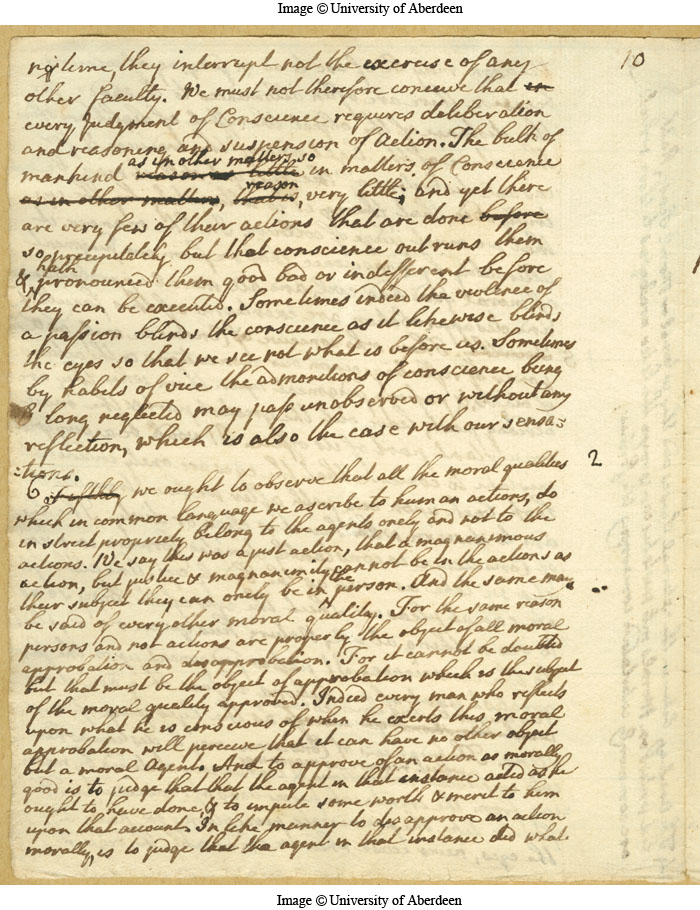 Image © University of Aberdeen
10
no time, they interrupt not the exercise of any
other faculty. We must not therefore conceive that in
every Judgment of Conscience requires deliberation
and reasoning and suspension of Action. The bulk of
as in other matters, so
mankind reason as little in matters of Conscience
reason
as in other matters, that is, very little; and yet there
are very few of their actions that are done before
so precipitately but that conscience out runs them
hath
& pronounced them good bad or indifferent before
they can be executed. Sometimes indeed the violence of
a passion blinds the conscience as it likewise blinds
the eyes so that we see not what is before us. Sometimes
by habits of vice the admonitions of conscience being
long neglected may pass unobserved or without any
reflection, which is also the case with our sensa=
=tions.
2
6 Fifthly we ought to observe that all the moral qualities
which in common language we ascribe to human actions, do
in strict propriety belong to the agents onely and not to the
actions. We say this was a just action, that a magnanimous
action, but justice & magnanimity cannot be in the actions as
the
their subject they can onely be in person. And the same may
be said of every other moral quality. For the same reason
persons and not actions are properly the object of all moral
approbation and disapprobation. For it cannot be doubted
but that must be the object of approbation which is the subject
of the moral quality approved. Indeed every man who reflects
upon what he is conscious of when he exerts this moral
approbation will perceive that it can have no other object
but a moral Agent. And to approve of an action as morally
good is to judge that that the agent in that instance acted as he
ought to have done, & to impute some worth & merit to him
upon that account. In like manner to disapprove an action
morally, is to judge that the agent in that instance did what
Image © University of Aberdeen